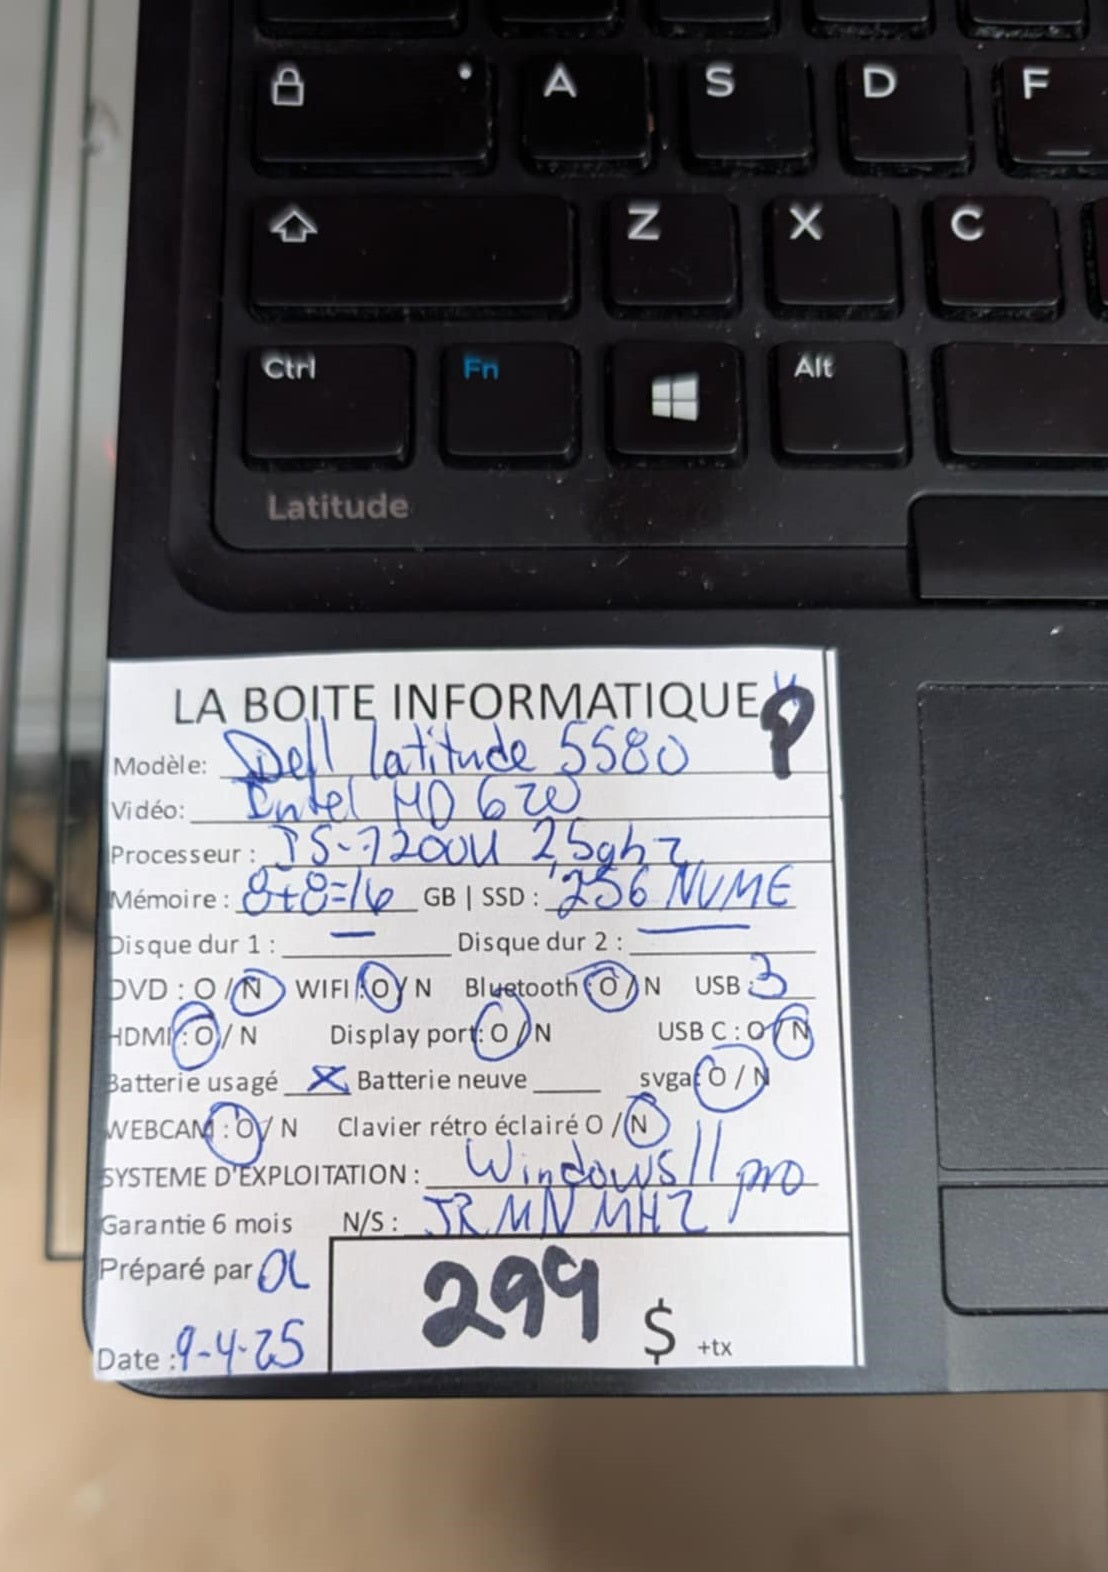 A S D F
Z X C
Ctrl Fn Alt
Latitude
LA BOITE INFORMATIQUE
Modèle: Dell latitude 5580
Vidéo: Intel HD 620
Processeur : I5-7200U 2,5ghz
Mémoire : 8+8=16 GB | SSD : 256 NVME
Disque dur 1 : — Disque dur 2 : —
DVD : O / N WIFI : O / N Bluetooth : O / N USB : 3
HDMI : O / N Display port: O / N USB C : O / N
Batterie usagé X Batterie neuve svga: O / N
WEBCAM : O / N Clavier rétro éclairé O / N
SYSTEME D'EXPLOITATION : Windows 11 pro
Garantie 6 mois N/S : JRMNMHZ
Préparé par
299 $ +tx
Date : 9-4-25